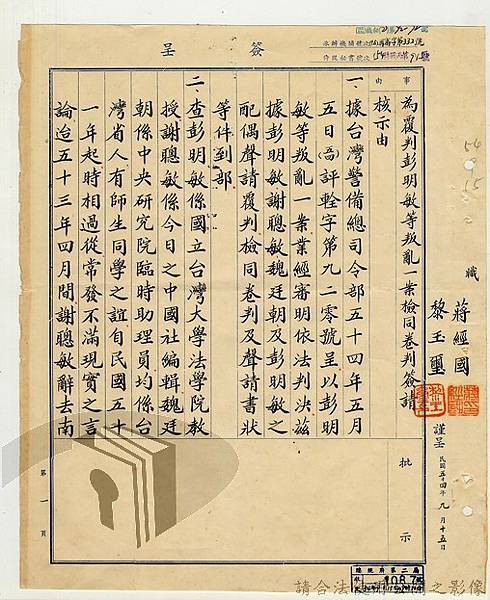 簽呈
事由
為覆判彭明敏等叛亂一案檢同卷判簽請
核示由
一、據台灣警備總司令部五十四年五月
五日評銓字第九二零號呈以彭明
敏等叛亂一案業經審明依法判決茲
據彭明敏謝聰敏魏廷朝及彭明敏之
配偶聲請覆判檢同卷判及聲請書狀
等件到部
二、查彭明敏係國立台灣大學法學院教
授謝聰敏係今日之中國社編輯魏廷
朝係中央研究院臨時助理員均係台
灣省人有師生同學之誼自民國五十
一年起時相過從常發不滿現實之言
論迨五十三年四月間謝聰敏辭去南
職
蔣經國
黎玉璽
謹呈
民國五十四年九月十五日
批示
第一頁
總統府第二局
1087
請合法使用之影像